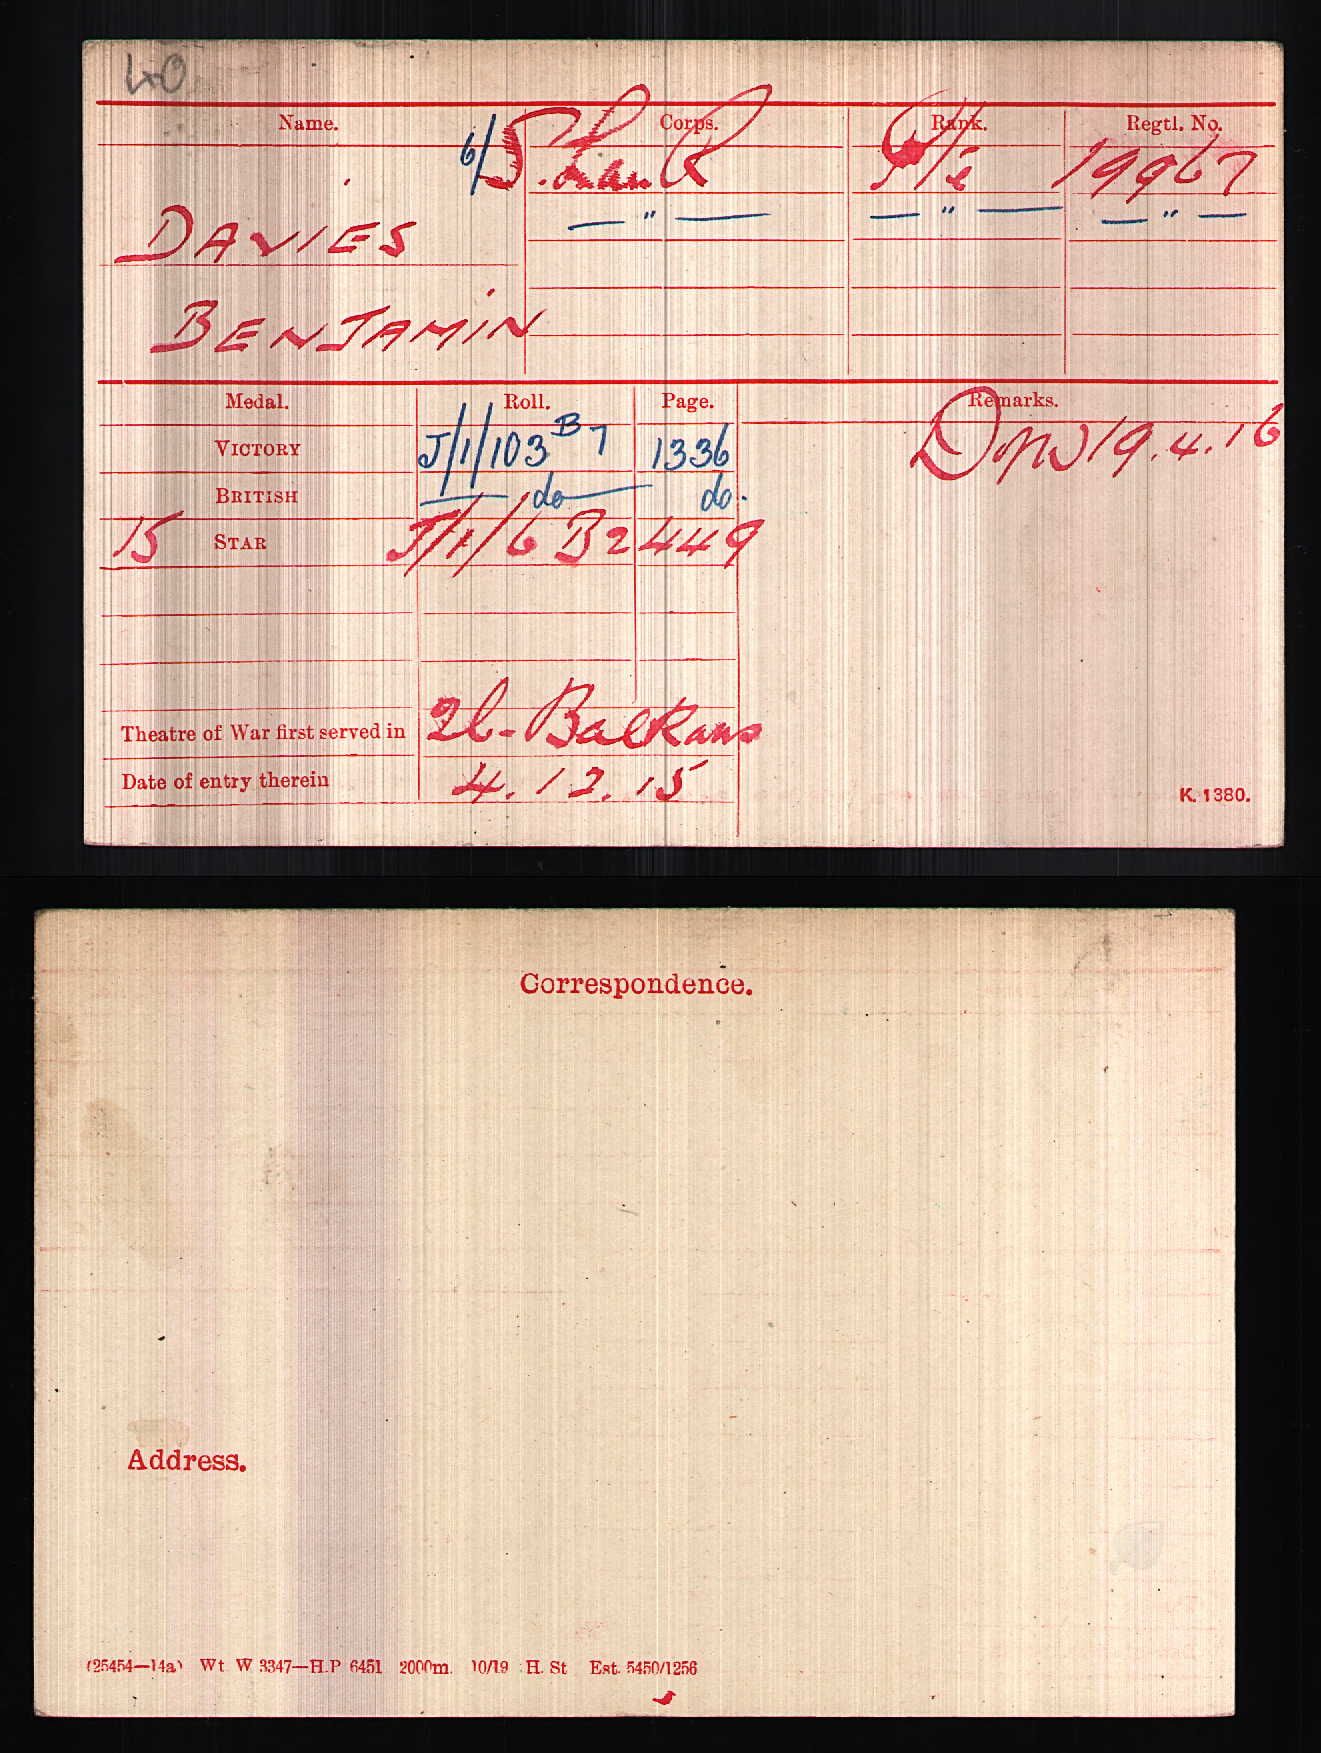 40
Name. Corps. Rank. Regtl. No.
6/ S. Lan R Pte 19967
DAVIES — " — — " — — " —
BENJAMIN
Medal. Roll. Page. Remarks.
VICTORY J/1/103 B7 1336 D of W 19.4.16
BRITISH — do — do.
15 STAR J/1/6 B2 449
Theatre of War first served in 2b - Balkans
Date of entry therein 4.12.15
K. 1380.
Correspondence.
Address.
(25454—14a) Wt. W 3347—H.P 6451 2000m. 10/19 H. St Est. 5450/1256